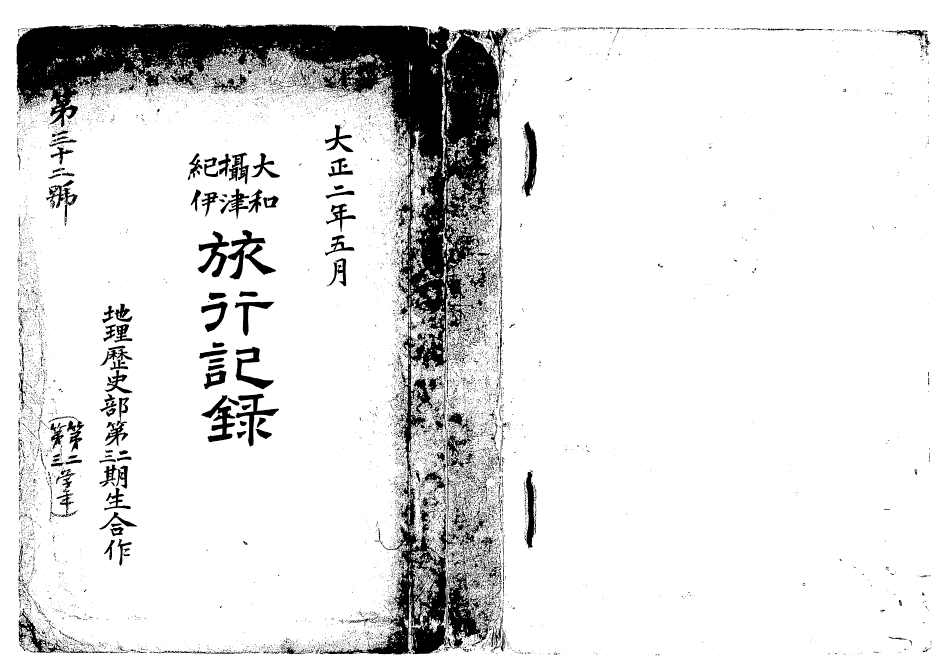 大正二年五月
大和
攝津
紀伊
旅行記録
地理歴史部第二三期生合作
(第二第三学年)
第三十二號